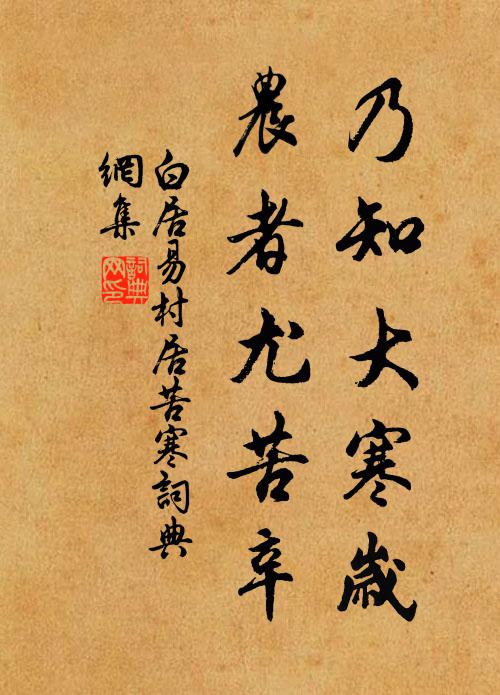 乃知大寒歲
農者尤苦辛
白居易村居苦寒詞典
網集
詞典
网印